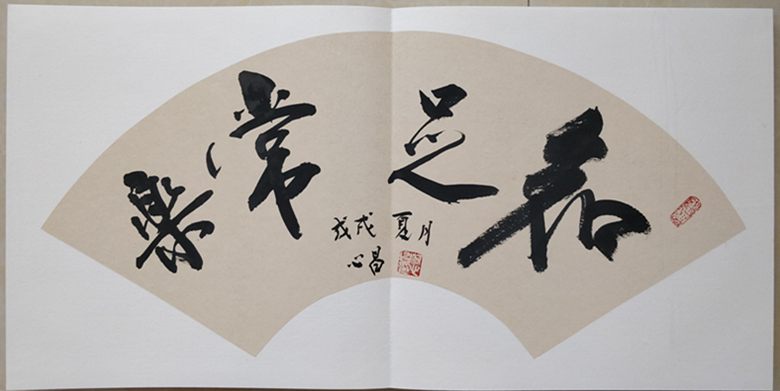 知足常樂
戊戌夏月
心昌